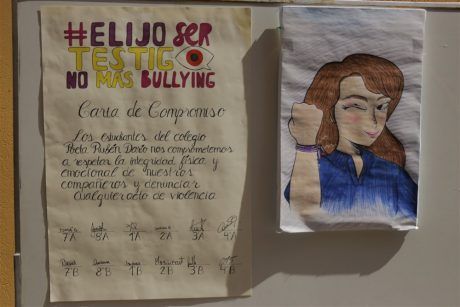 #ELIJO SER
TESTIGO
NO MÁS BULLYING
Carta de Compromiso
Los estudiantes del colegio
Poeta Rubén Darío nos comprometemos
a respetar la integridad física y
emocional de nuestros
compañeros y denunciar
cualquier acto de violencia.
7A 8A 1A 2A 3A 4A
7B 8B 1B 2B 3B 4B